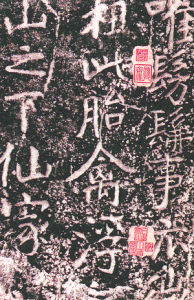 唯髣髴事亦
相此胎禽浮
山之下仙家